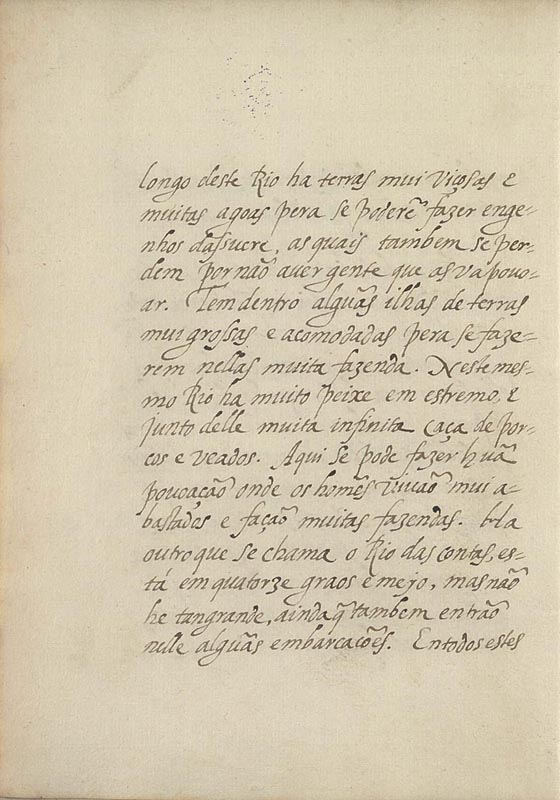 longo deste Rio ha terras mui viçosas e
muitas agoas pera se poderẽ fazer enge-
nhos dassucre, as quais tambem se per-
dem por não aver gente que as va povo-
ar. Tem dentro alguãs ilhas de terras
mui grossas e acomodadas pera se faze-
rem nellas muita fazenda. Neste mes-
mo Rio ha muito peixe em estremo, e
junto delle muita infinita caça de por-
cos e veados. Aqui se pode fazer huã
povoação onde os homẽs vivão mui a-
bastados e fação muitas fazendas. Ha
outro que se chama o Rio das contas, es-
tá em quatorze graos e mejo, mas não
he tan grande, ainda q̃ tambem entrão
nelle alguãs embarcacões. En todos estes